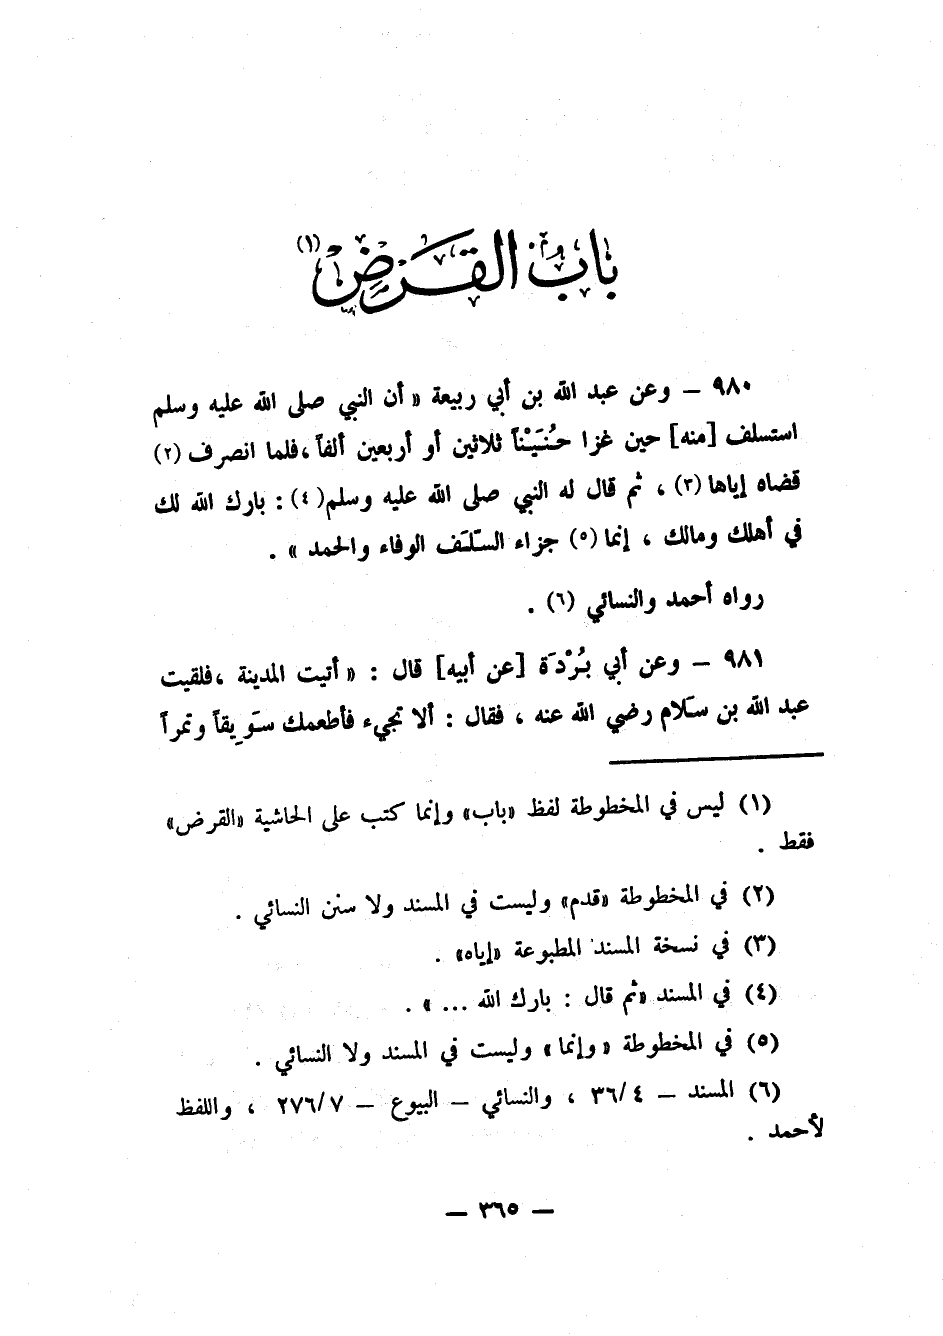 بَابُ القَرْضِ (١)
٩٨٠ – وعن عبد الله بن أبي ربيعة « أن النبي صلى الله عليه وسلم
استسلف [منه] حين غزا حُنَيْناً ثلاثين أو أربعين ألفاً ،فلما انصرف (٢)
قضاه إياها (٣) ، ثم قال له النبي صلى الله عليه وسلم(٤) : بارك الله لك
في أهلك ومالك ، إنما (٥) جزاء السّلَف الوفاء والحمد » .
رواه أحمد والنسائي (٦) .
٩٨١ – وعن أبي بُرْدَة [عن أبيه] قال : « أتيت المدينة ،فلقيت
عبد الله بن سَلام رضي الله عنه ، فقال : ألا تجيء فأطعمك سَوِيقاً وتمراً
(١) ليس في المخطوطة لفظ «باب» وإنما كتب على الحاشية «القرض»
فقط .
(٢) في المخطوطة «قدم» وليست في المسند ولا سنن النسائي .
(٣) في نسخة المسند المطبوعة «إياه» .
(٤) في المسند «ثم قال : بارك الله ... » .
(٥) في المخطوطة « وإنما » وليست في المسند ولا النسائي .
(٦) المسند – ٣٦/٤ ، والنسائي – البيوع – ٢٧٦/٧ ، واللفظ
لأحمد .
– ٣٦٥ –